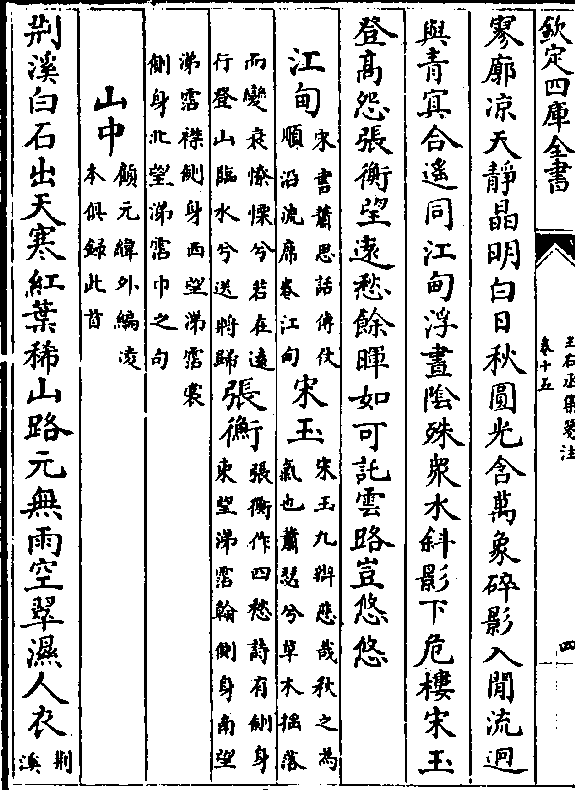 欽定四庫全書
王右丞集箋注
卷十五
四
寥廓凉天靜晶明白日秋圓光含萬象碎影入閒流迥
與青冥合遙同江甸浮晝陰殊衆水斜影下危樓宋玉
登高怨張衡望遠愁餘暉如可託雲路豈悠悠
江甸宋書蕭思話傳仗順沿流席卷江甸宋玉宋玉九辯悲哉秋之為氣也蕭瑟兮草木揺落
而變衰憭慄兮若在遠行登山臨水兮送將歸張衡張衡作四愁詩有側身東望涕霑翰側身南望
涕霑襟側身西望涕霑裳側身北望涕霑巾之句
山中顧元緯外編凌本俱録此首
荆溪白石出天寒紅葉稀山路元無雨空翠濕人衣荆溪